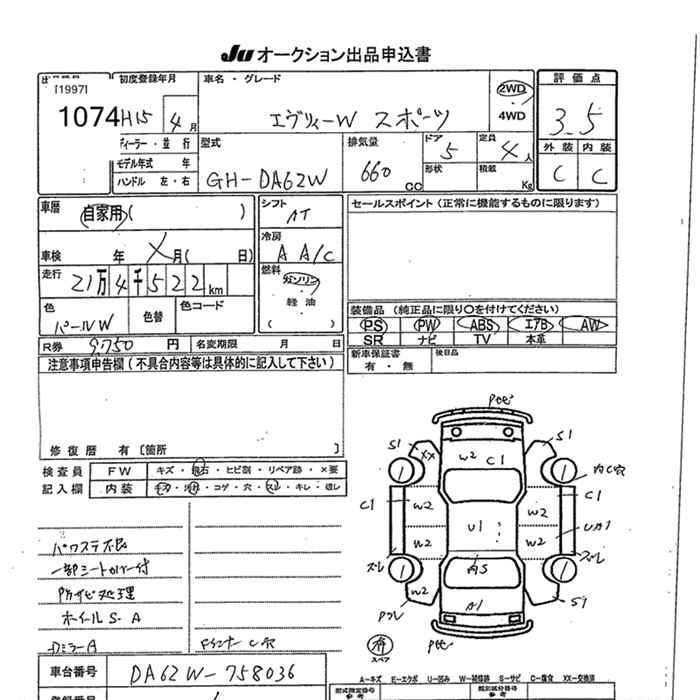 Ju オークション出品申込書
[1997]
1074
初度登録年月
H15 4月
ディーラー・並行
モデル年式 年
ハンドル 左・右
車名・グレード
エヴリィーW スポーツ
2WD
4WD
型式
GH-DA62W
排気量
660 cc
ドア
5
形状
定員
4人
積載
Kg
評価点
3.5
外装 内装
C C
車歴
自家用( )
車検 年 月( 日)
走行
21万4千522km
色
パールW
色替
色コード
シフト
AT
冷房
A A/C
燃料
ガソリン
軽油
( )
セールスポイント (正常に機能するものに限ります)
装備品 (純正品に限り○を付けてください)
PS PW ABS エアB AW
SR ナビ TV 本革
新車保証書
有・無
後日品
R券 9,750 円
名変期限 月 日
注意事項申告欄 (不具合内容等は具体的に記入して下さい)
修復歴 有 [箇所 ]
検査員
記入欄
FW キズ・飛石・ヒビ割・リペア跡・X要
内装 キズ・汚れ・コゲ・穴・スレ・キレ・破レ
パワステ不良
一部シートカバー付
防サビ処理
ホイールS.A
S1 XX W2 C1 S1
C1 W2 W2 C1
U1
W2 W2
ズレ ズレ
W2 A1 S1
有
スペア
A-キズ E-エクボ U-凹み W-補修跡 S-サビ C-腐食 XX-交換済
車台番号
DA62W-758036
型式指定番号
参考
類別区分番号
参考
登録番号